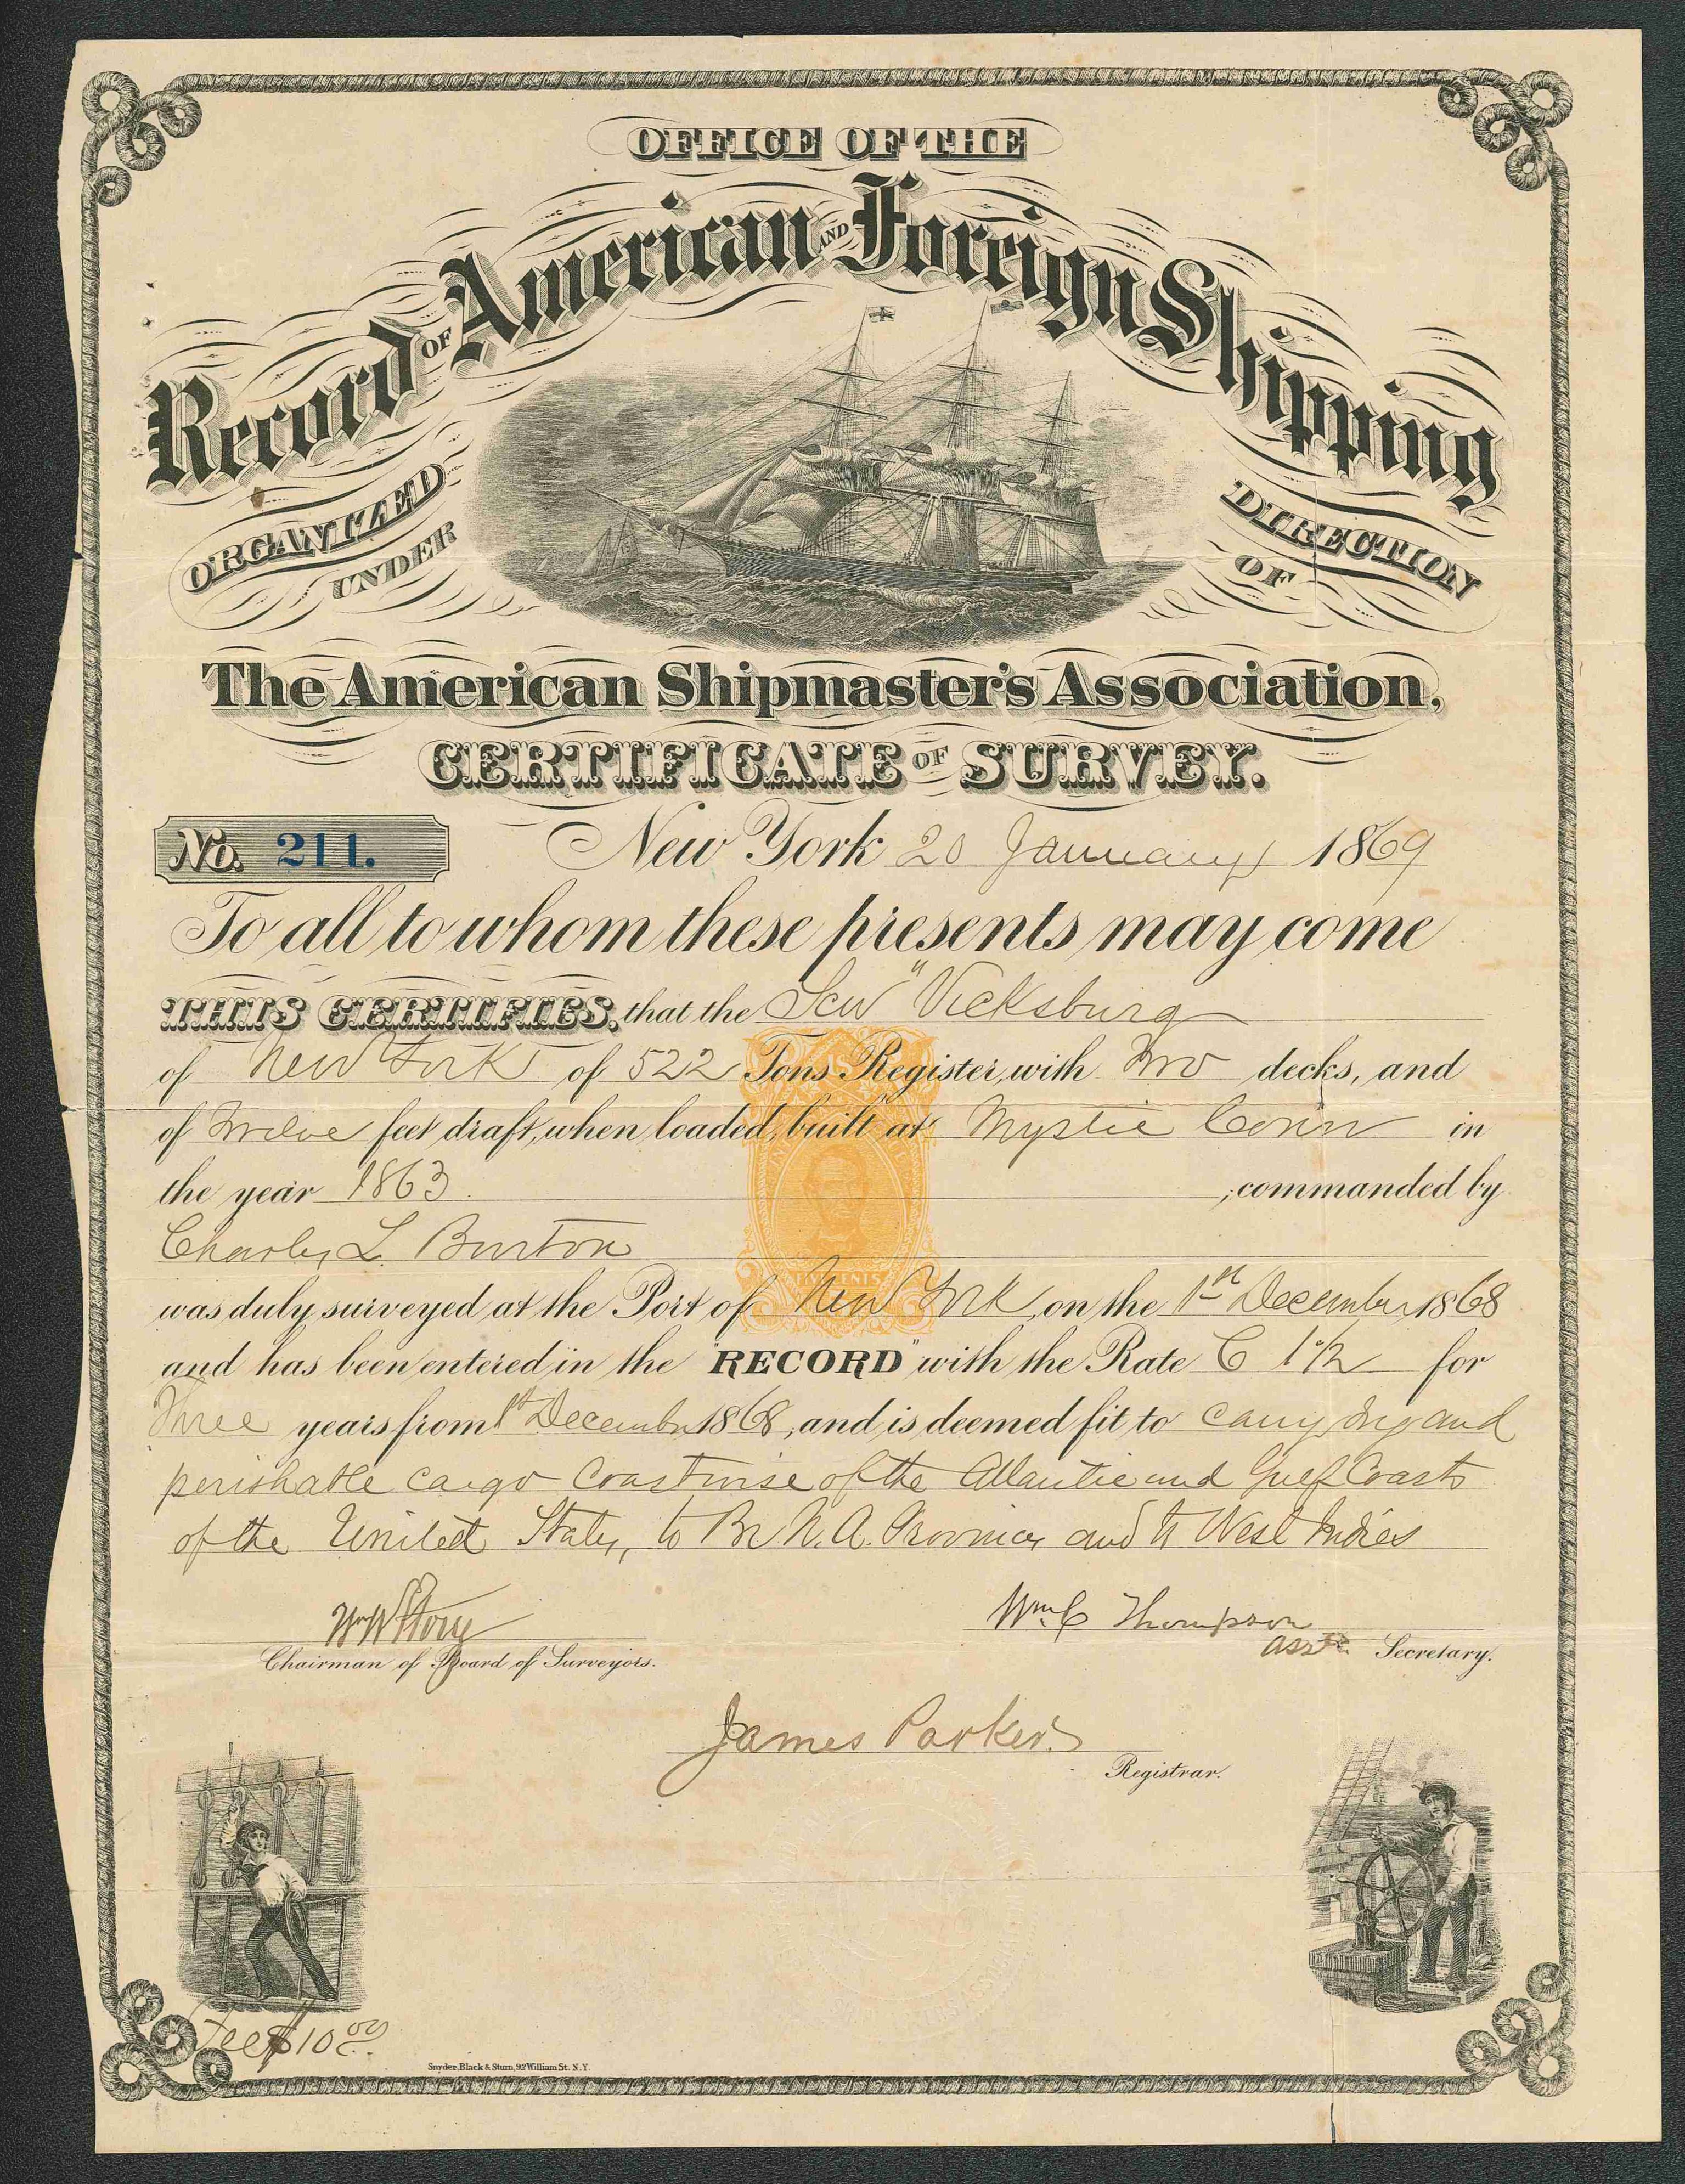 OFFICE OF THE
Record OF American AND Foreign Shipping
ORGANIZED UNDER DIRECTION OF
The American Shipmaster's Association,
CERTIFICATE OF SURVEY.
No. 211. New York 20 January 1869
To all to whom these presents may come
THIS CERTIFIES, that the Scw "Vicksburg
of New York of 522 Tons Register, with Two decks, and
of Twelve feet draft, when loaded, built at Mystic Conn in
the year 1863 ; commanded by
Charles L. Burton
was duly surveyed at the Port of New York on the 1st December 1868
and has been entered in the "RECORD" with the Rate C 1 1/2 for
Three years from 1st December 1868, and is deemed fit to carry dry and
perishable cargo Coastwise of the Atlantic and Gulf Coasts
of the United States, to Br N. A. Provinces and to West Indies
Wm C Thompson
Asst Secretary.
Chairman of Board of Surveyors.
James Parker
Registrar.
Fee $10 00
Snyder, Black & Sturn, 92 William St. N.Y.